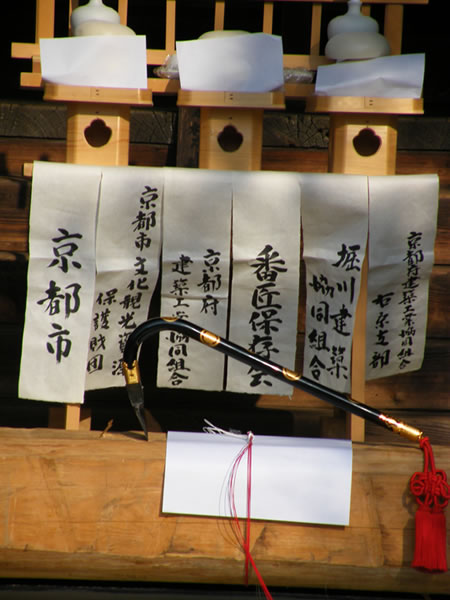 京都府建築工業協同組合
右京支部
堀川建築
協同組合
番匠保存会
京都府
建築工業協同組合
京都市文化観光資源
保護財団
京都市